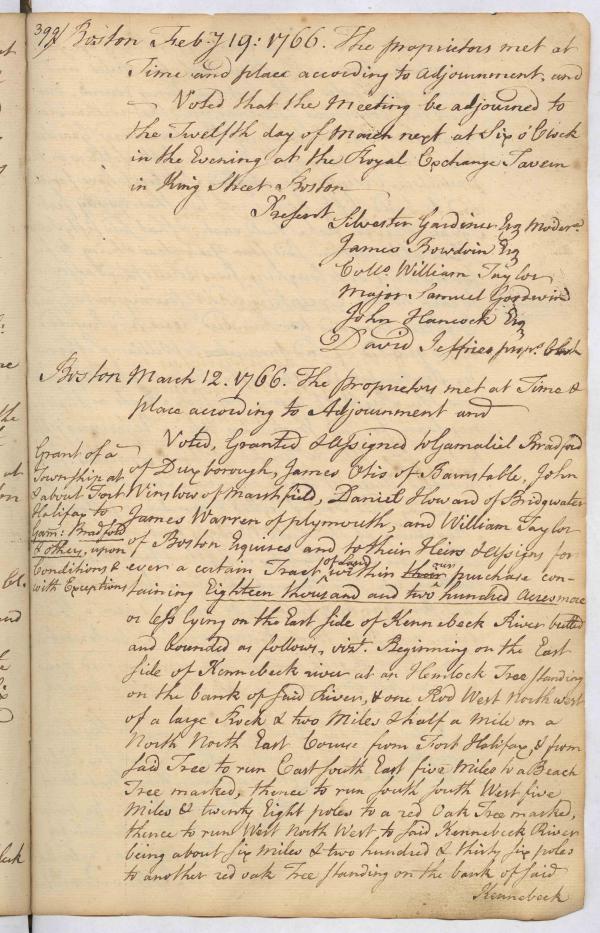 399/ Boston Feb.y 19: 1766. The proprietors met at
Time and place according to adjournment, and
Voted that the Meeting be adjourned to
the Twelfth day of March next at Six o'Clock
in the Evening at the Royal Exchange Tavern
in King Street Boston
Present Silvester Gardiner Esq Moder.r
James Bowdoin Esq
Collo. William Taylor
Major Samuel Goodwin
John Hancock Esq
David Jeffries prop.s Clerk
Boston March 12. 1766. The proprietors met at Time &
place according to Adjournment and
Voted, Granted & assigned to Gamaliel Bradford
of Duxborough, James Otis of Barnstable, John
Winslow of Marshfield, Daniel Howard of Bridgwater
James Warren of plymouth, and William Taylor
of Boston Esquires and to their Heirs & Assigns for
ever a certain Tract of Land within their our purchase con-
taining Eighteen thousand and two hundred Acres more
or less lying on the East side of Kennebeck River butted
and bounded as follows, vizt. Beginning on the East
side of Kennebeck river at an Hemlock Tree standing
on the bank of said River, & one Rod West North west
of a large Rock & two Miles & half a Mile on a
North North East Course from Fort Halifax, & from
said Tree to run East South East five Miles to a Beach
Tree marked, thence to run South South West five
Miles & twenty Eight poles to a red Oak Tree marked,
thence to run West North West, to said Kennebeck River
being about six Miles & two hundred & thirty six poles
to another red oak Tree standing on the bank of said
Kennebeck
Grant of a
Township at
& about Fort
Halifax to
Gam: Bradford
& others, upon
Conditions &
with Exceptions